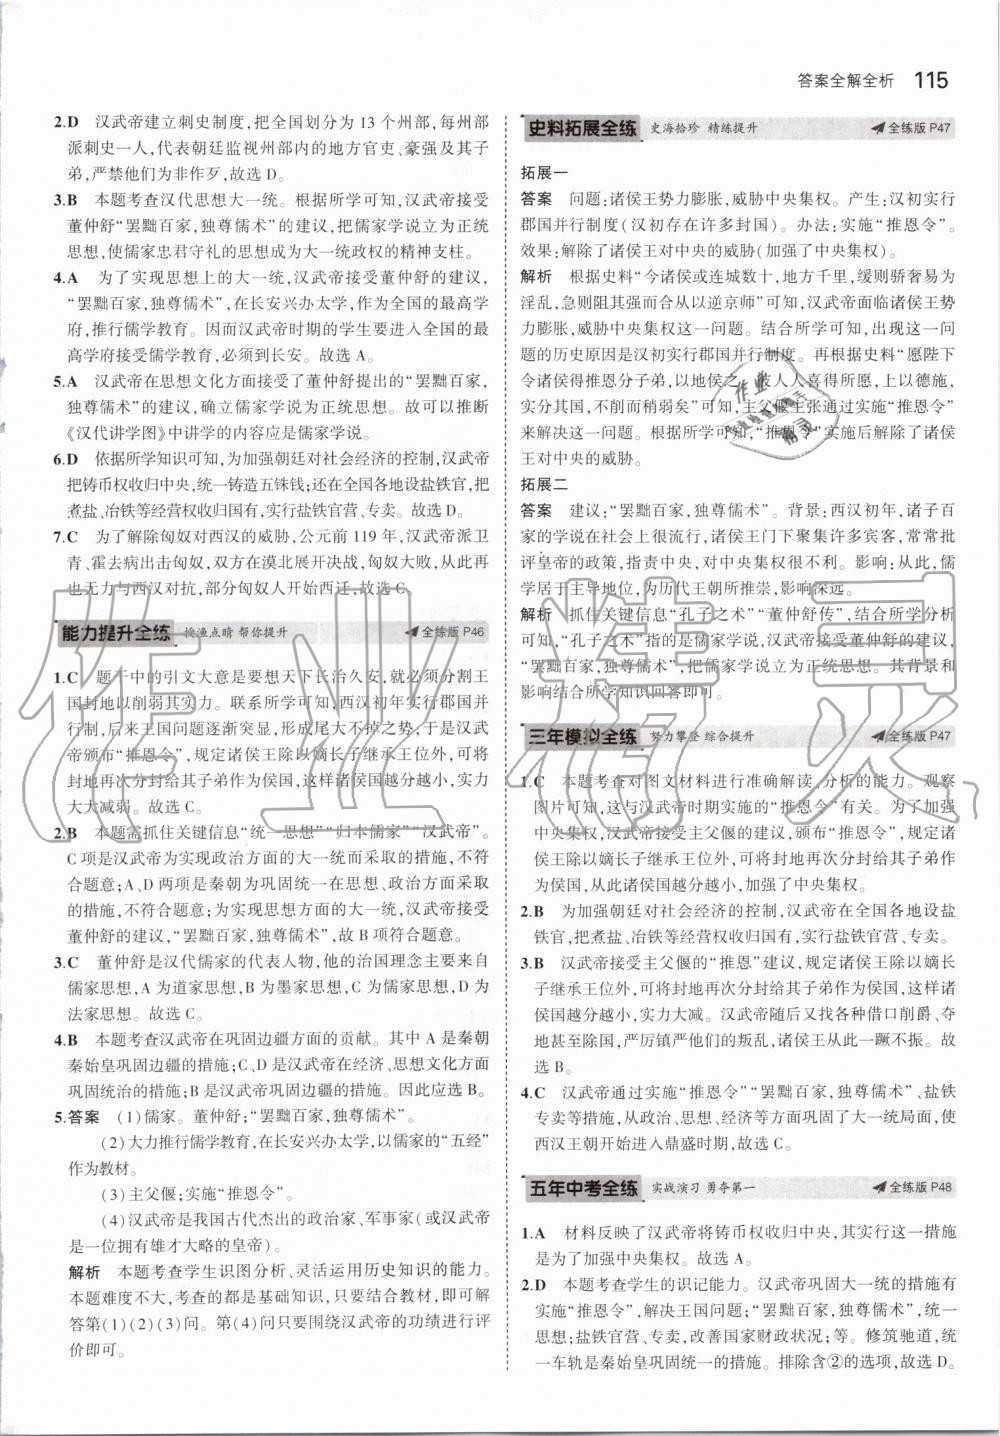 答案全解全析 115
2.D 汉武帝建立刺史制度,把全国划分为 13 个州部,每州部
派刺史一人,代表朝廷监视州部内的地方官吏、豪强及其子
弟,严禁他们为非作歹,故选 D。
3.B 本题考查汉代思想大一统。根据所学可知,汉武帝接受
董仲舒“罢黜百家,独尊儒术”的建议,把儒家学说立为正统
思想,使儒家忠君守礼的思想成为大一统政权的精神支柱。
4.A 为了实现思想上的大一统,汉武帝接受董仲舒的建议,
“罢黜百家,独尊儒术”,在长安兴办太学,作为全国的最高学
府,推行儒学教育。因而汉武帝时期的学生要进入全国的最
高学府接受儒学教育,必须到长安。故选 A。
5.A 汉武帝在思想文化方面接受了董仲舒提出的“罢黜百家,
独尊儒术”的建议,确立儒家学说为正统思想。故可以推断
《汉代讲学图》中讲学的内容应是儒家学说。
6.D 依据所学知识可知,为加强朝廷对社会经济的控制,汉武帝
把铸币权收归中央,统一铸造五铢钱;还在全国各地设盐铁官,把
煮盐、冶铁等经营权收归国有,实行盐铁官营、专卖。故选 D。
7.C 为了解除匈奴对西汉的威胁,公元前 119 年,汉武帝派卫
青、霍去病出击匈奴,双方在漠北展开决战,匈奴大败,从此再
也无力与西汉对抗,部分匈奴人开始西迁,故选 C。
能力提升全练 拨渔点睛 帮你提升 全练版 P46
1.C 题干中的引文大意是要想天下长治久安,就必须分割王
国封地以削弱其实力。联系所学可知,西汉初年实行郡国并
行制,后来王国问题逐渐突显,形成尾大不掉之势,于是汉武
帝颁布“推恩令”,规定诸侯王除以嫡长子继承王位外,可将
封地再次分封给其子弟作为侯国,这样诸侯国越分越小,实力
大大减弱。故选 C。
2.B 本题需抓住关键信息“统一思想”“归本儒家”“汉武帝”。
C 项是汉武帝为实现政治方面的大一统而采取的措施,不符
合题意;A、D 两项是秦朝为巩固统一在思想、政治方面采取
的措施,不符合题意;为巩固思想方面的大一统,汉武帝接受
董仲舒的建议,“罢黜百家,独尊儒术”,故 B 项符合题意。
3.C 董仲舒是汉代儒家的代表人物,他的治国理念主要来自
儒家思想,A 为道家思想、B 为墨家思想、C 为儒家思想、D 为
法家思想。故选 C。
4.B 本题考查汉武帝在巩固边疆方面的贡献。其中 A 是秦朝
秦始皇巩固边疆的措施;C、D 是汉武帝在经济、思想文化方面
巩固统治的措施;B 是汉武帝巩固边疆的措施。因此应选 B。
5.答案 (1)儒家。董仲舒;“罢黜百家,独尊儒术”。
(2)大力推行儒学教育,在长安兴办太学,以儒家的“五经”
作为教材。
(3)主父偃;实施“推恩令”。
(4)汉武帝是我国古代杰出的政治家、军事家(或汉武帝
是一位拥有雄才大略的皇帝)。
解析 本题考查学生识图分析、灵活运用历史知识的能力。
本题难度不大,考查的都是基础知识,只要结合教材,即可解
答第(1)(2)(3)问。第(4)问只要围绕汉武帝的功绩进行评
价即可。
史料拓展全练 史海拾珍 精练提升 全练版 P47
拓展一
答案 问题:诸侯王势力膨胀,威胁中央集权。产生:汉初实行
郡国并行制度(汉初存在许多封国)。办法:实施“推恩令”。
效果:解除了诸侯王对中央的威胁(加强了中央集权)。
解析 根据史料“今诸侯或连城数十,地方千里,缓则骄奢易为
淫乱,急则阻其强而合从以逆京师”可知,汉武帝面临诸侯王势
力膨胀,威胁中央集权这一问题。结合所学可知,出现这一问
题的历史原因是汉初实行郡国并行制度。再根据史料“愿陛下
令诸侯得推恩分子弟,以地侯之,彼人人喜得所愿,上以德施,
实分其国,不削而稍弱矣”可知,主父偃主张通过实施“推恩令”
来解决这一问题。根据所学可知,“推恩令”实施后解除了诸侯
王对中央的威胁。
拓展二
答案 建议:“罢黜百家,独尊儒术”。背景:西汉初年,诸子百
家的学说在社会上很流行,诸侯王门下聚集许多宾客,常常批
评皇帝的政策,指责中央,对中央集权很不利。影响:从此,儒
学居于主导地位,为历代王朝所推崇,影响深远。
解析 抓住关键信息“孔子之术”“董仲舒传”,结合所学分析
可知,“孔子之术”指的是儒家学说,汉武帝接受董仲舒的建议,
“罢黜百家,独尊儒术”,把儒家学说立为正统思想。其背景和
影响结合所学知识回答即可。
三年模拟全练 努力攀登 综合提升 全练版 P47
1.C 本题考查对图文材料进行准确解读、分析的能力。观察
图片可知,这与汉武帝时期实施的“推恩令”有关。为了加强
中央集权,汉武帝接受主父偃的建议,颁布“推恩令”,规定诸
侯王除以嫡长子继承王位外,可将封地再次分封给其子弟作
为侯国,从此诸侯国越分越小,加强了中央集权。
2.B 为加强朝廷对社会经济的控制,汉武帝在全国各地设盐
铁官,把煮盐、冶铁等经营权收归国有,实行盐铁官营、专卖。
3.B 汉武帝接受主父偃的“推恩”建议,规定诸侯王除以嫡长
子继承王位外,可将封地再次分封给其子弟作为侯国,这样诸
侯国越分越小,实力大为减弱。汉武帝又以各种借口削爵、夺
地甚至除国,严厉镇严他们的叛乱,诸侯王从此一蹶不振。故
选 B。
4.C 汉武帝通过实施“推恩令”“罢黜百家,独尊儒术”、盐铁
专卖等措施,从政治、思想、经济等方面巩固了大一统局面,使
西汉王朝开始进入鼎盛时期,故选 C。
五年中考全练 实战演习 勇夺第一 全练版 P48
1.A 材料反映了汉武帝将铸币权收归中央,其实行这一措施
是为了加强中央集权。故选 A。
2.D 本题考查学生的识记能力。汉武帝巩固大一统的措施有
实施“推恩令”,解决王国问题;“罢黜百家,独尊儒术”,统一
思想;盐铁官营、专卖,改善国家财政状况;等。修筑驰道,统
一车轨是秦始皇巩固统一的措施。排除含②的选项,故选 D。
作业精灵